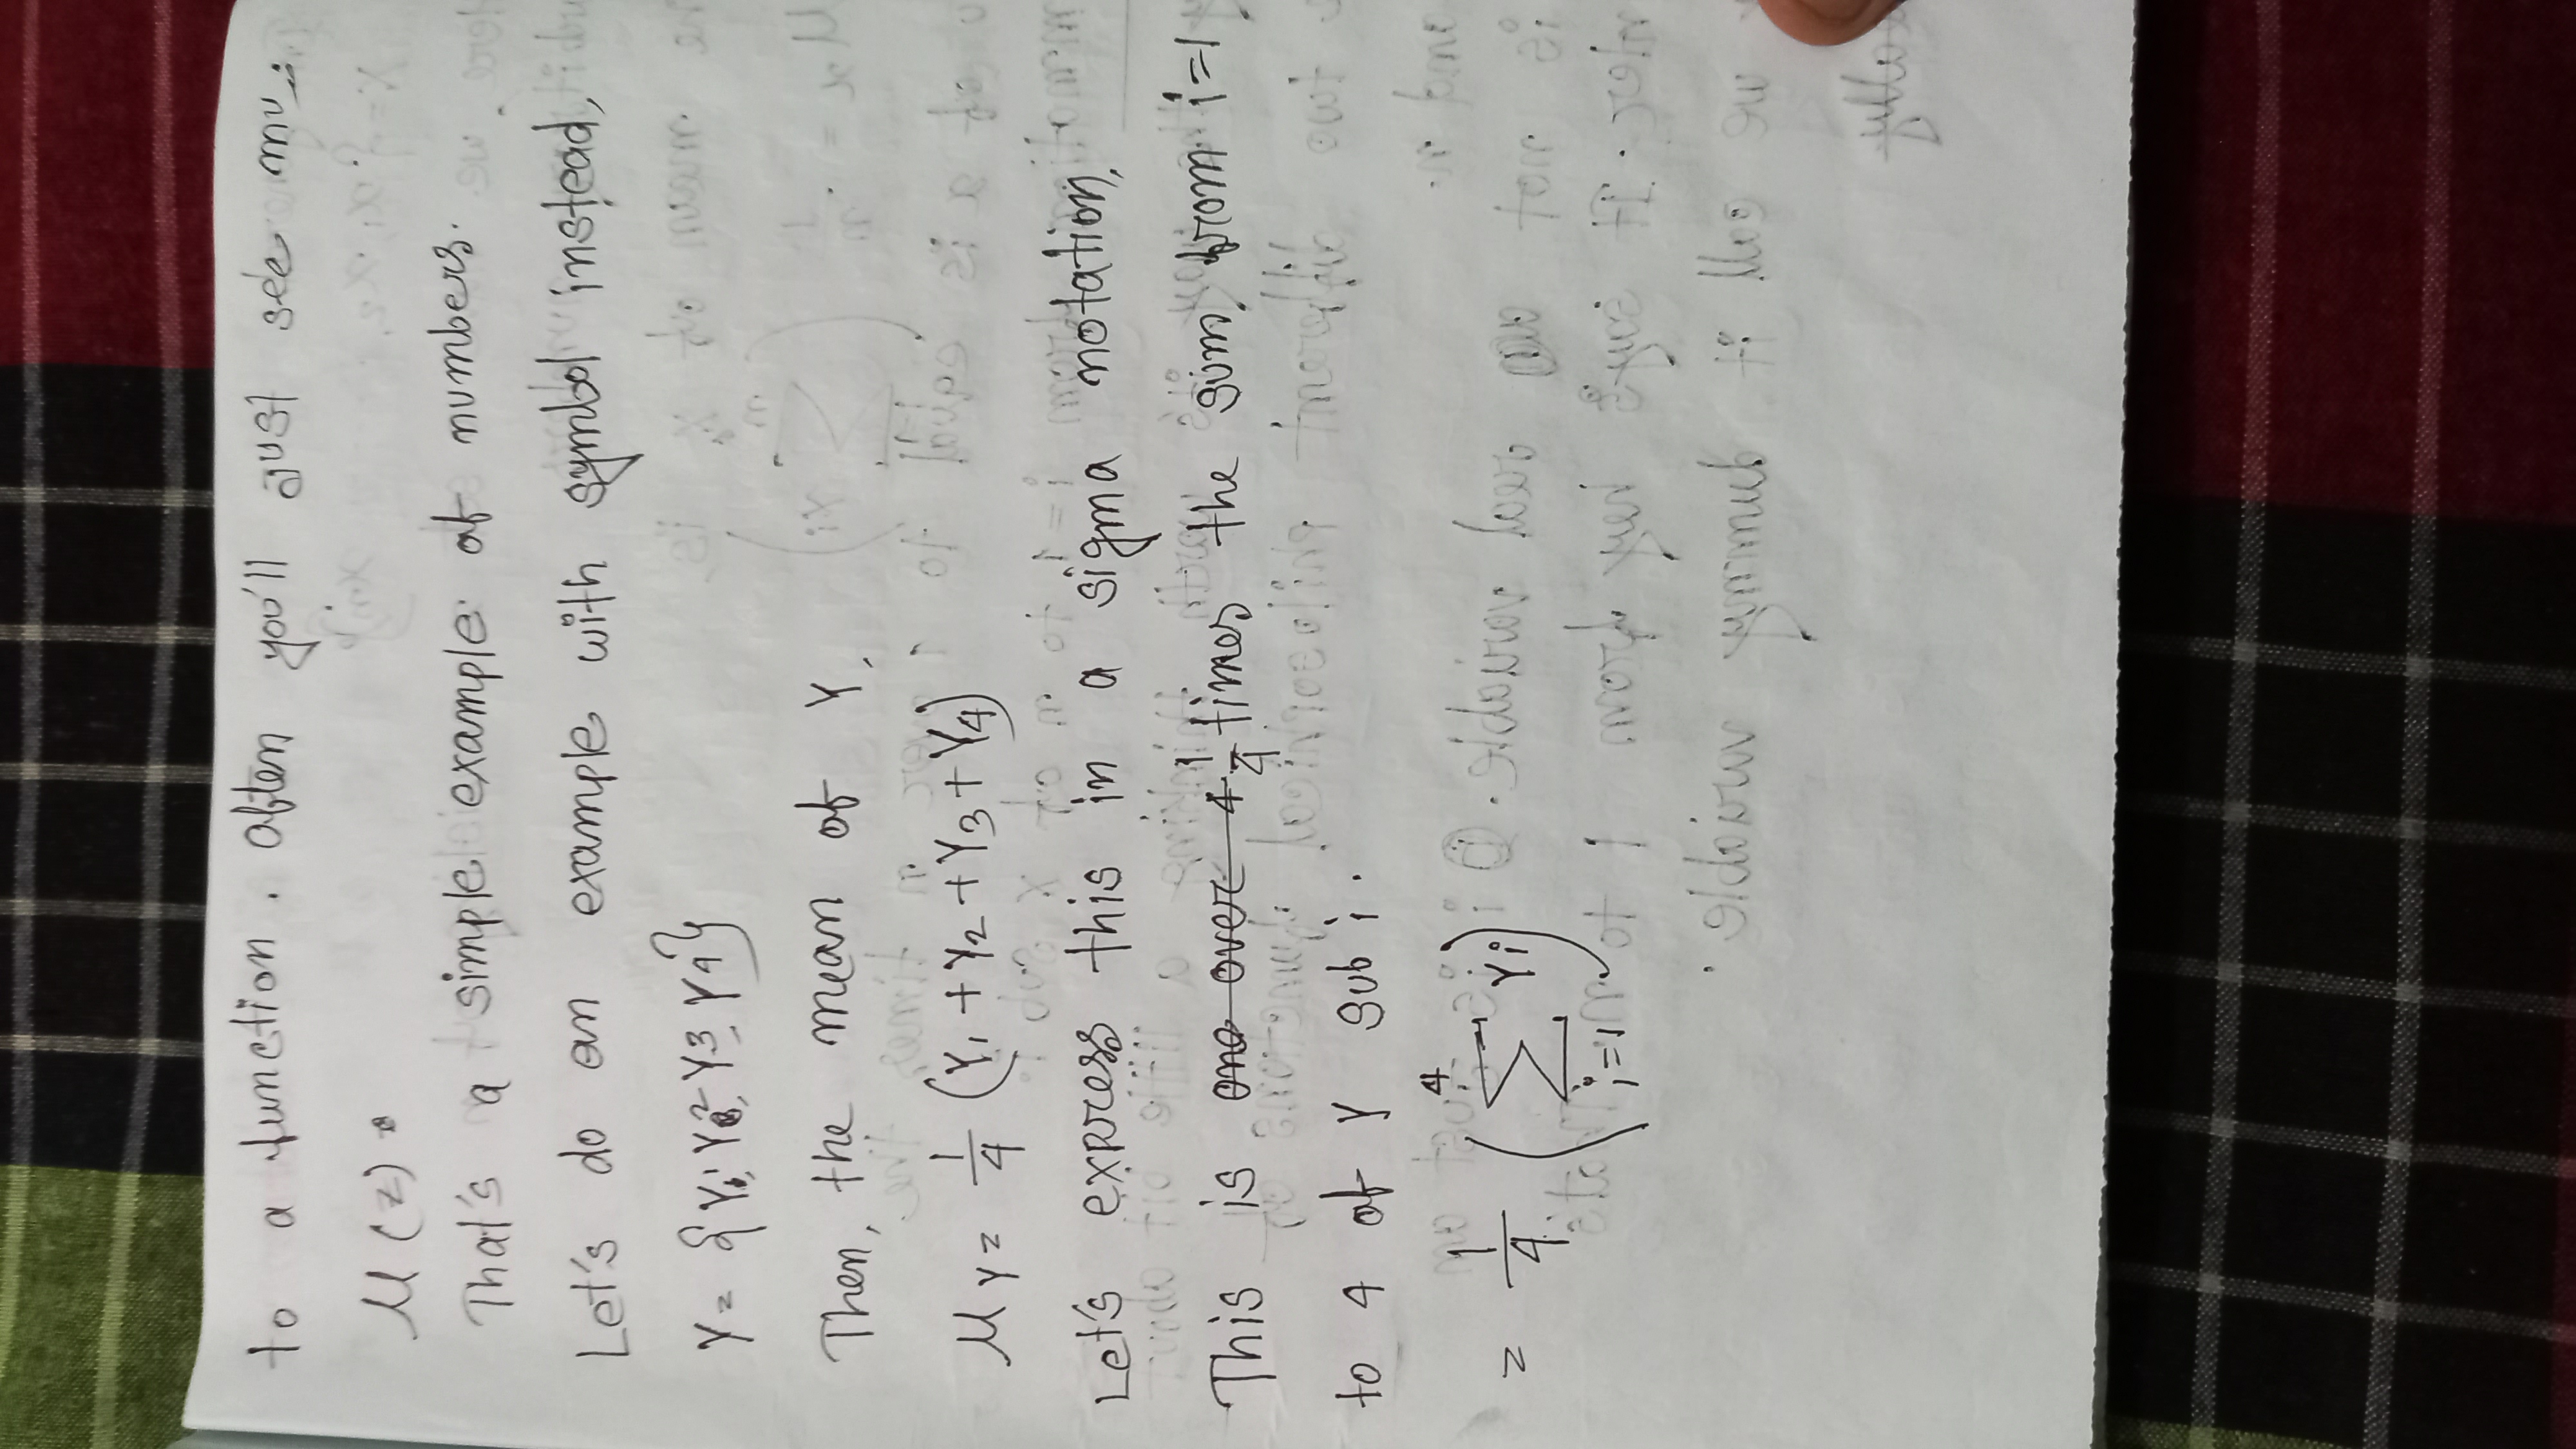 to a function. Often you'll just see mu.
M(z).
That's a simple example of numbers.
Let's do an example with symbol instead,
Y = {Y1, Y2, Y3, Y4}
Then, the mean of Y,
My = 1/4 (Y1 + Y2 + Y3 + Y4)
Let's express this in a sigma notation,
This is ~~one over 4~~ 1/4 times the sum from i=1
to 4 of Y sub i.
= 1/4 (∑ i=1 4 Yi)